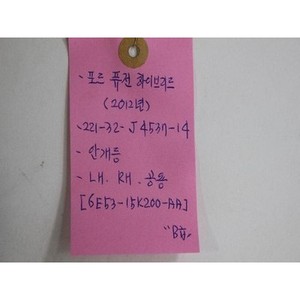 - 포드 퓨전 하이브리드
(2012년)
- 221-32-J4537-14
- 안개등
- LH. RH. 공용
[6E53-15K200-AA]
"B급.